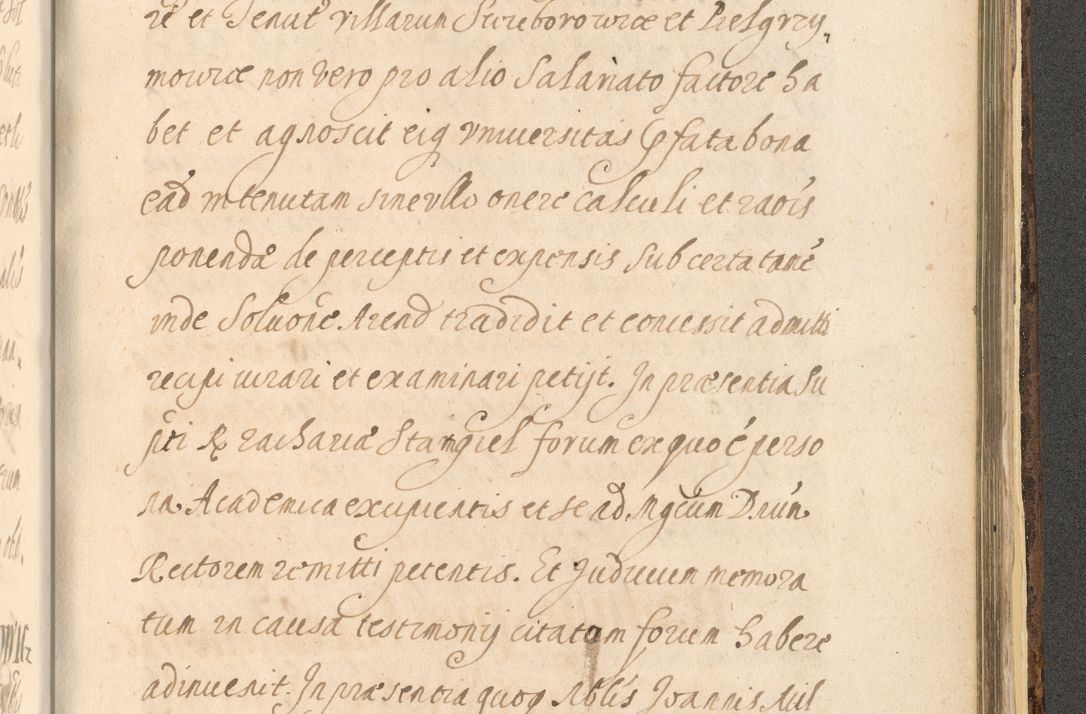 re et Tenut villarum Sureborowice et Pielgrzy„
mowice non vero pro alio Salariato factore ha
bet et agnoscit eiq universitas p̃fata bona
ead in tenutam sine ullo onere calculi et raõis
ponendæ de perceptis et expensis sub certa tamẽ
inde Soluõne Arend tradidit et concessit admitti
recipi iurari et examinari petijt. In præsentia Su
p̃ti R Zachariæ Stamgiel forum ex quo ẽ perso
na Academica excipientis et se ad Mgcum Dnum
Rectorem remitti petentis. Et Judicium memora
tum in causa testimonij citatum forum habere
adinuenit. In præsentia quoq Nblis Joannis Mil